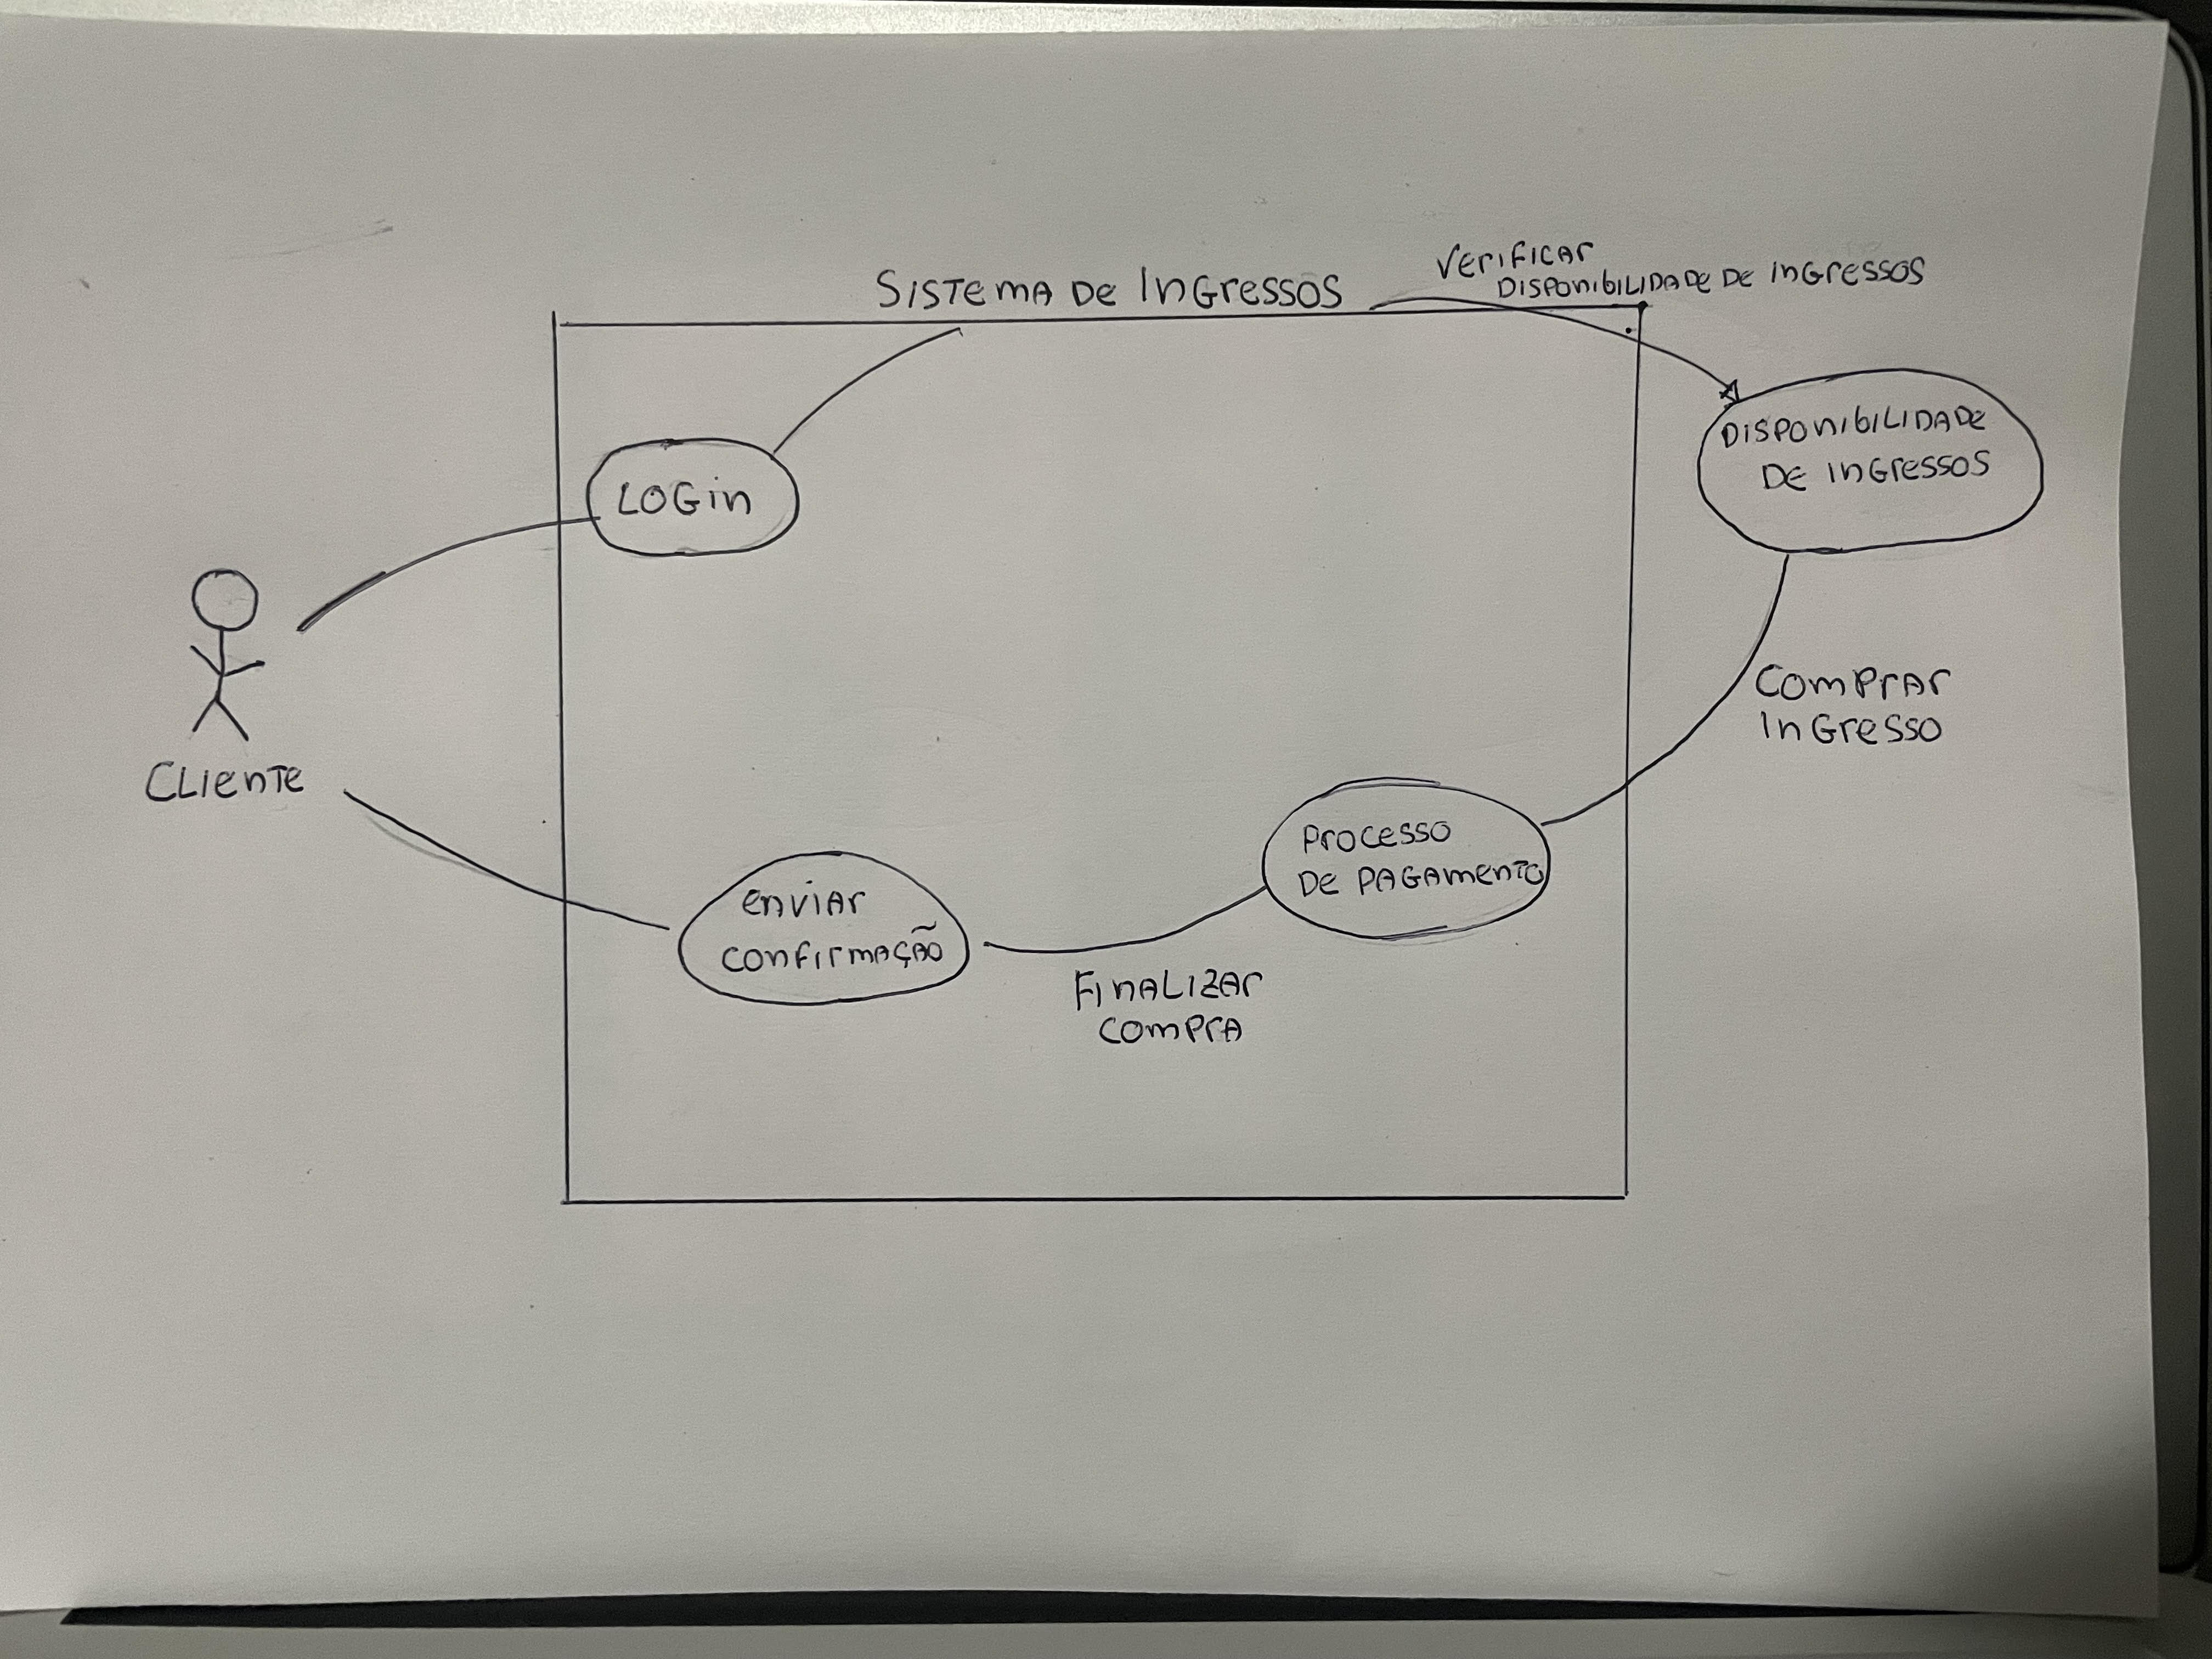 Sistema de Ingressos
Verificar
Disponibilidade de ingressos
Disponibilidade
de ingressos
Login
Comprar
Ingresso
Cliente
Processo
de pagamento
enviar
confirmação
Finalizar
compra